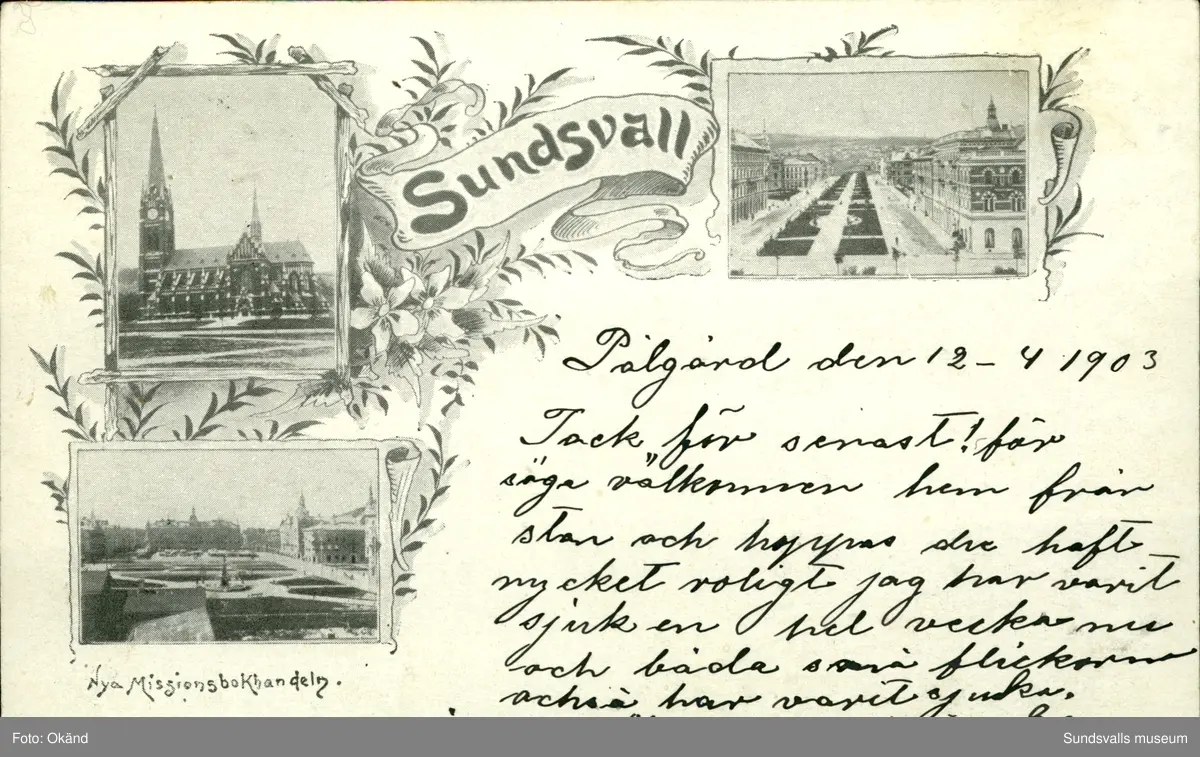 Sundsvall
Pålgård den 12 - 4 1903
Tack för senast! får
säga välkommen hem från
stan och hoppas du haft
mycket roligt jag har varit
sjuk en hel vecka nu
och båda små flickorna
också har varit sjuka.
Nya Missionsbokhandeln.
Foto: Okänd
Sundsvalls museum